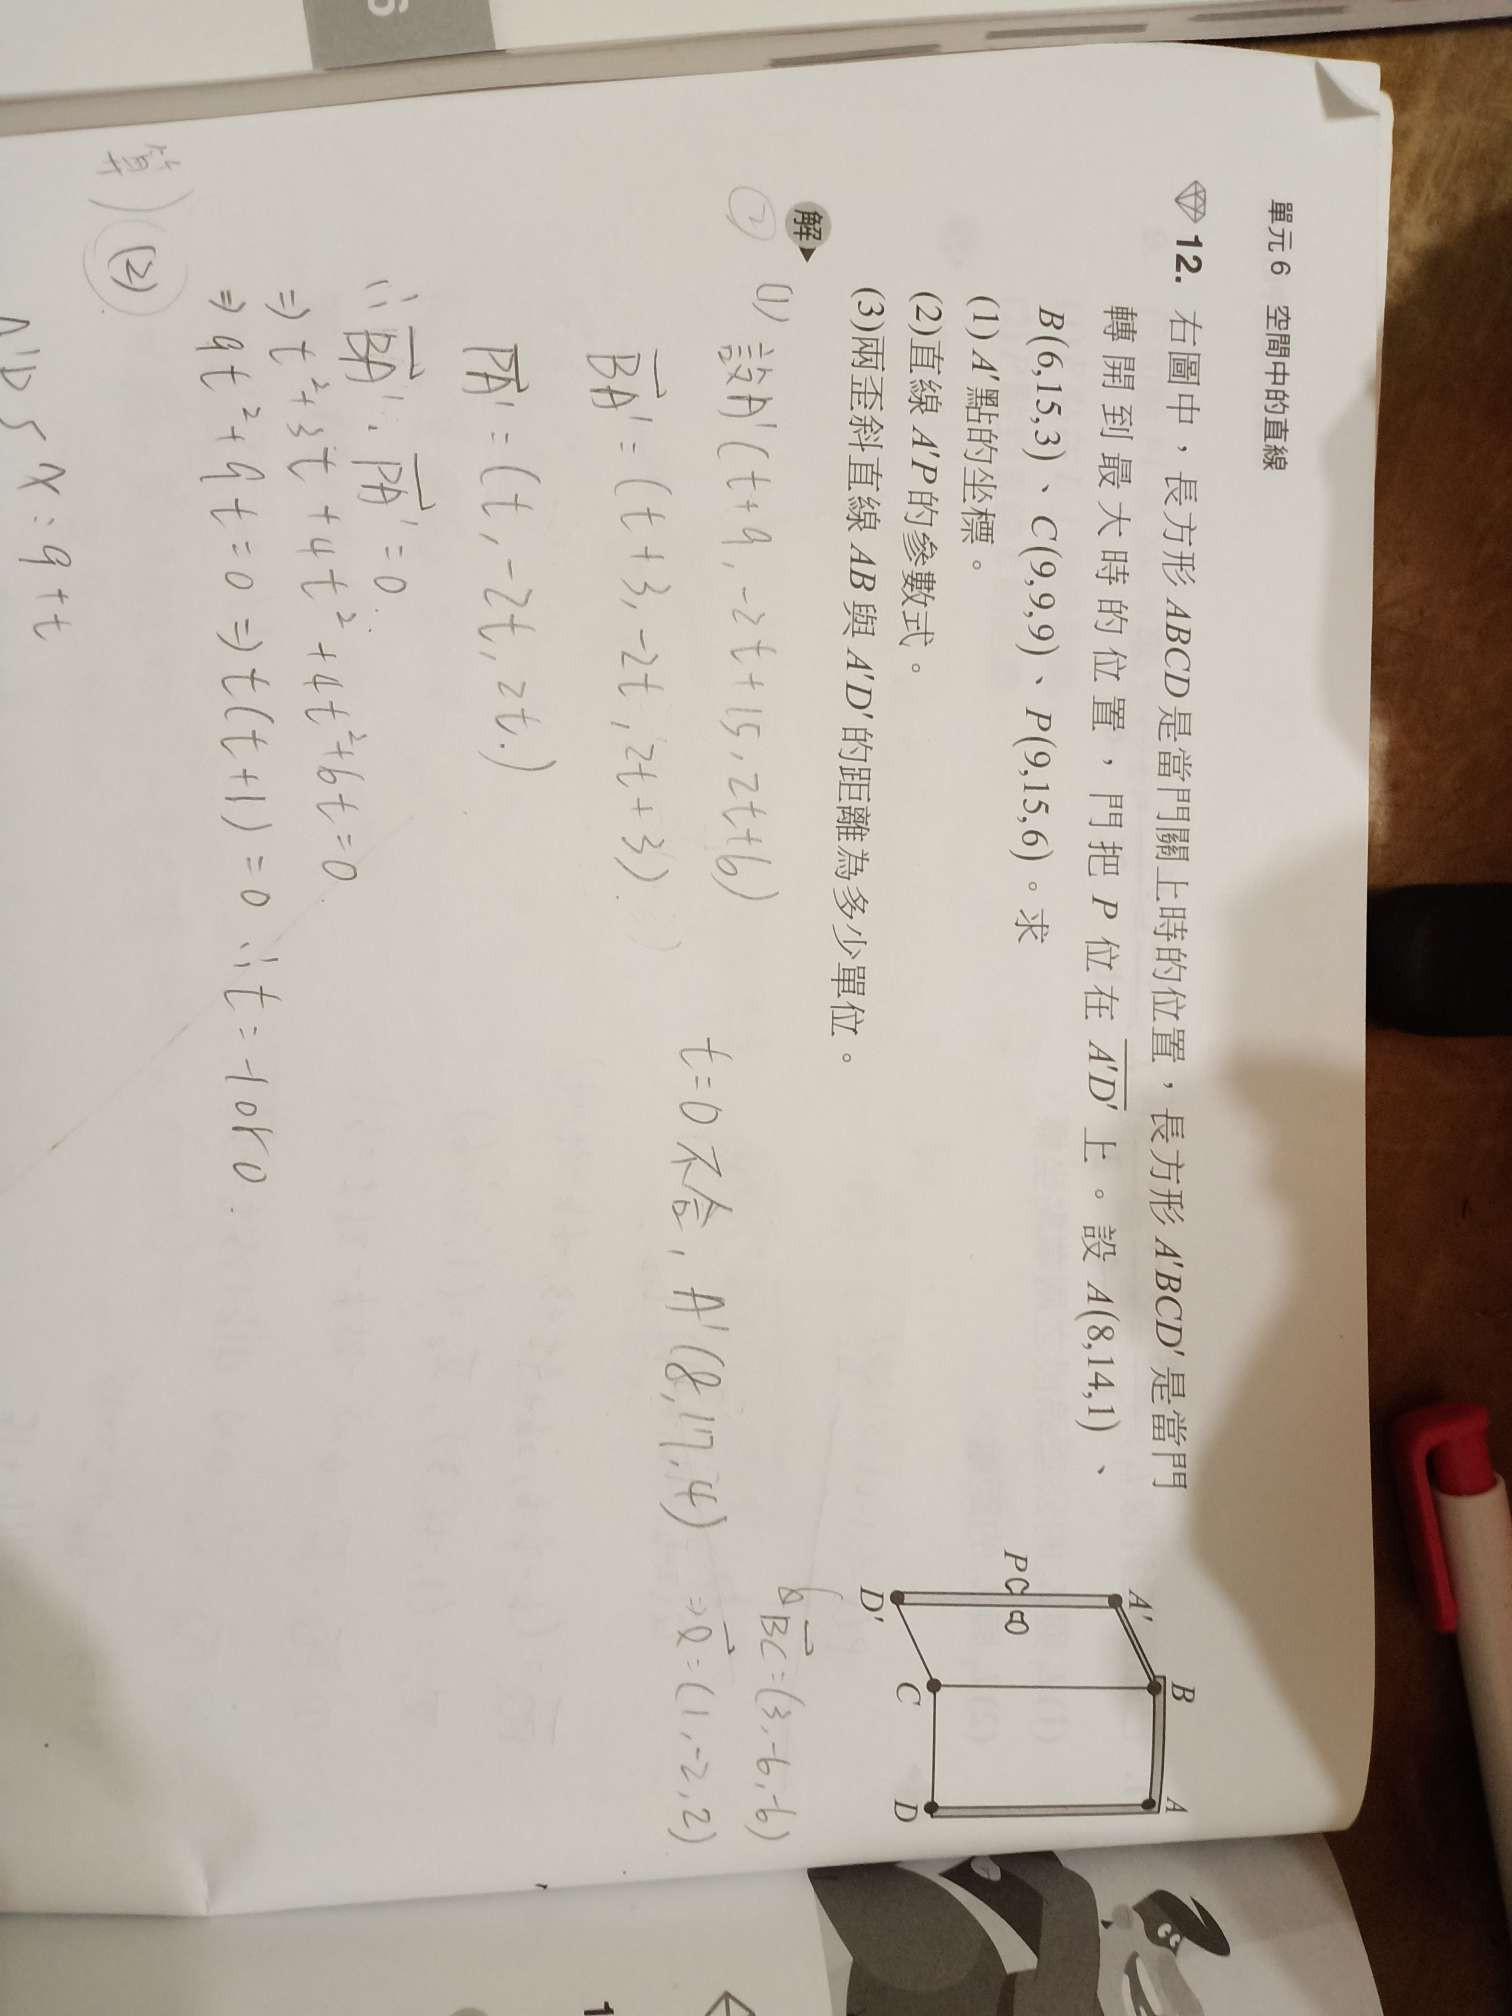 6
單元6 空間中的直線
12. 右圖中，長方形 ABCD 是當門關上時的位置，長方形 A'BCD' 是當門
轉開到最大時的位置，門把 P 位在 A'D' 上。設 A(8,14,1)、
B(6,15,3)、C(9,9,9)、P(9,15,6)。求
(1) A'點的坐標。
(2)直線 A'P 的參數式。
(3)兩歪斜直線 AB 與 A'D' 的距離為多少單位。
A' B A
P
D' C D
解
(1) 設A'(t+9, -2t+15, 2t+6)
BC=(3,-6,6)
BA'=(t+3, -2t, 2t+3)
t=0不合, A'(8,17,4) ⇒ l=(1,-2,2)
PA'=(t, -2t, 2t.)
∵ BA'·PA'=0.
⇒ t²+3t+4t²+4t²+6t=0
⇒ 9t²+9t=0 ⇒ t(t+1)=0 ∴ t=-1 or 0.
算) (2)
A'D { x: 9+t
1